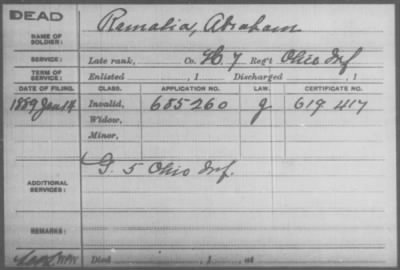 DEAD
Ramalia, Abraham
NAME OF
SOLDIER:
SERVICE: Late rank, Co. H. 7 Reg't Ohio Inf
TERM OF
SERVICE: Enlisted , 1 Discharged , 1
DATE OF FILING. CLASS. APPLICATION NO. LAW. CERTIFICATE NO.
1889 Jan 17 Invalid, 685260 g 619417
Widow,
Minor,
G. 5 Ohio Inf.
ADDITIONAL
SERVICES:
REMARKS:
Died , 1 , at